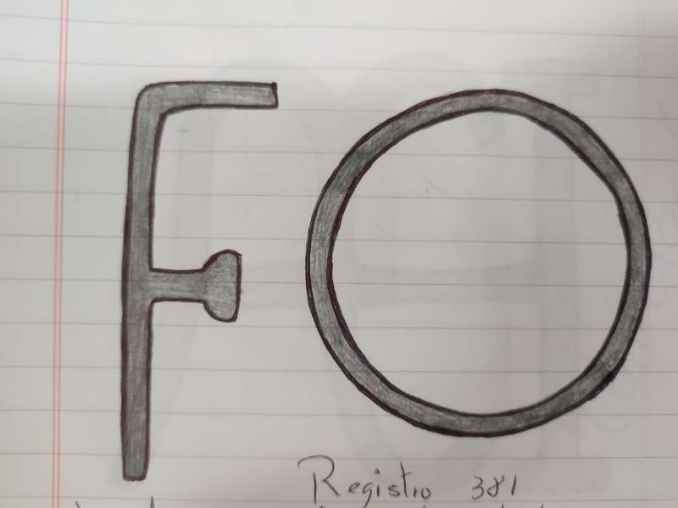 FO
Registro 381